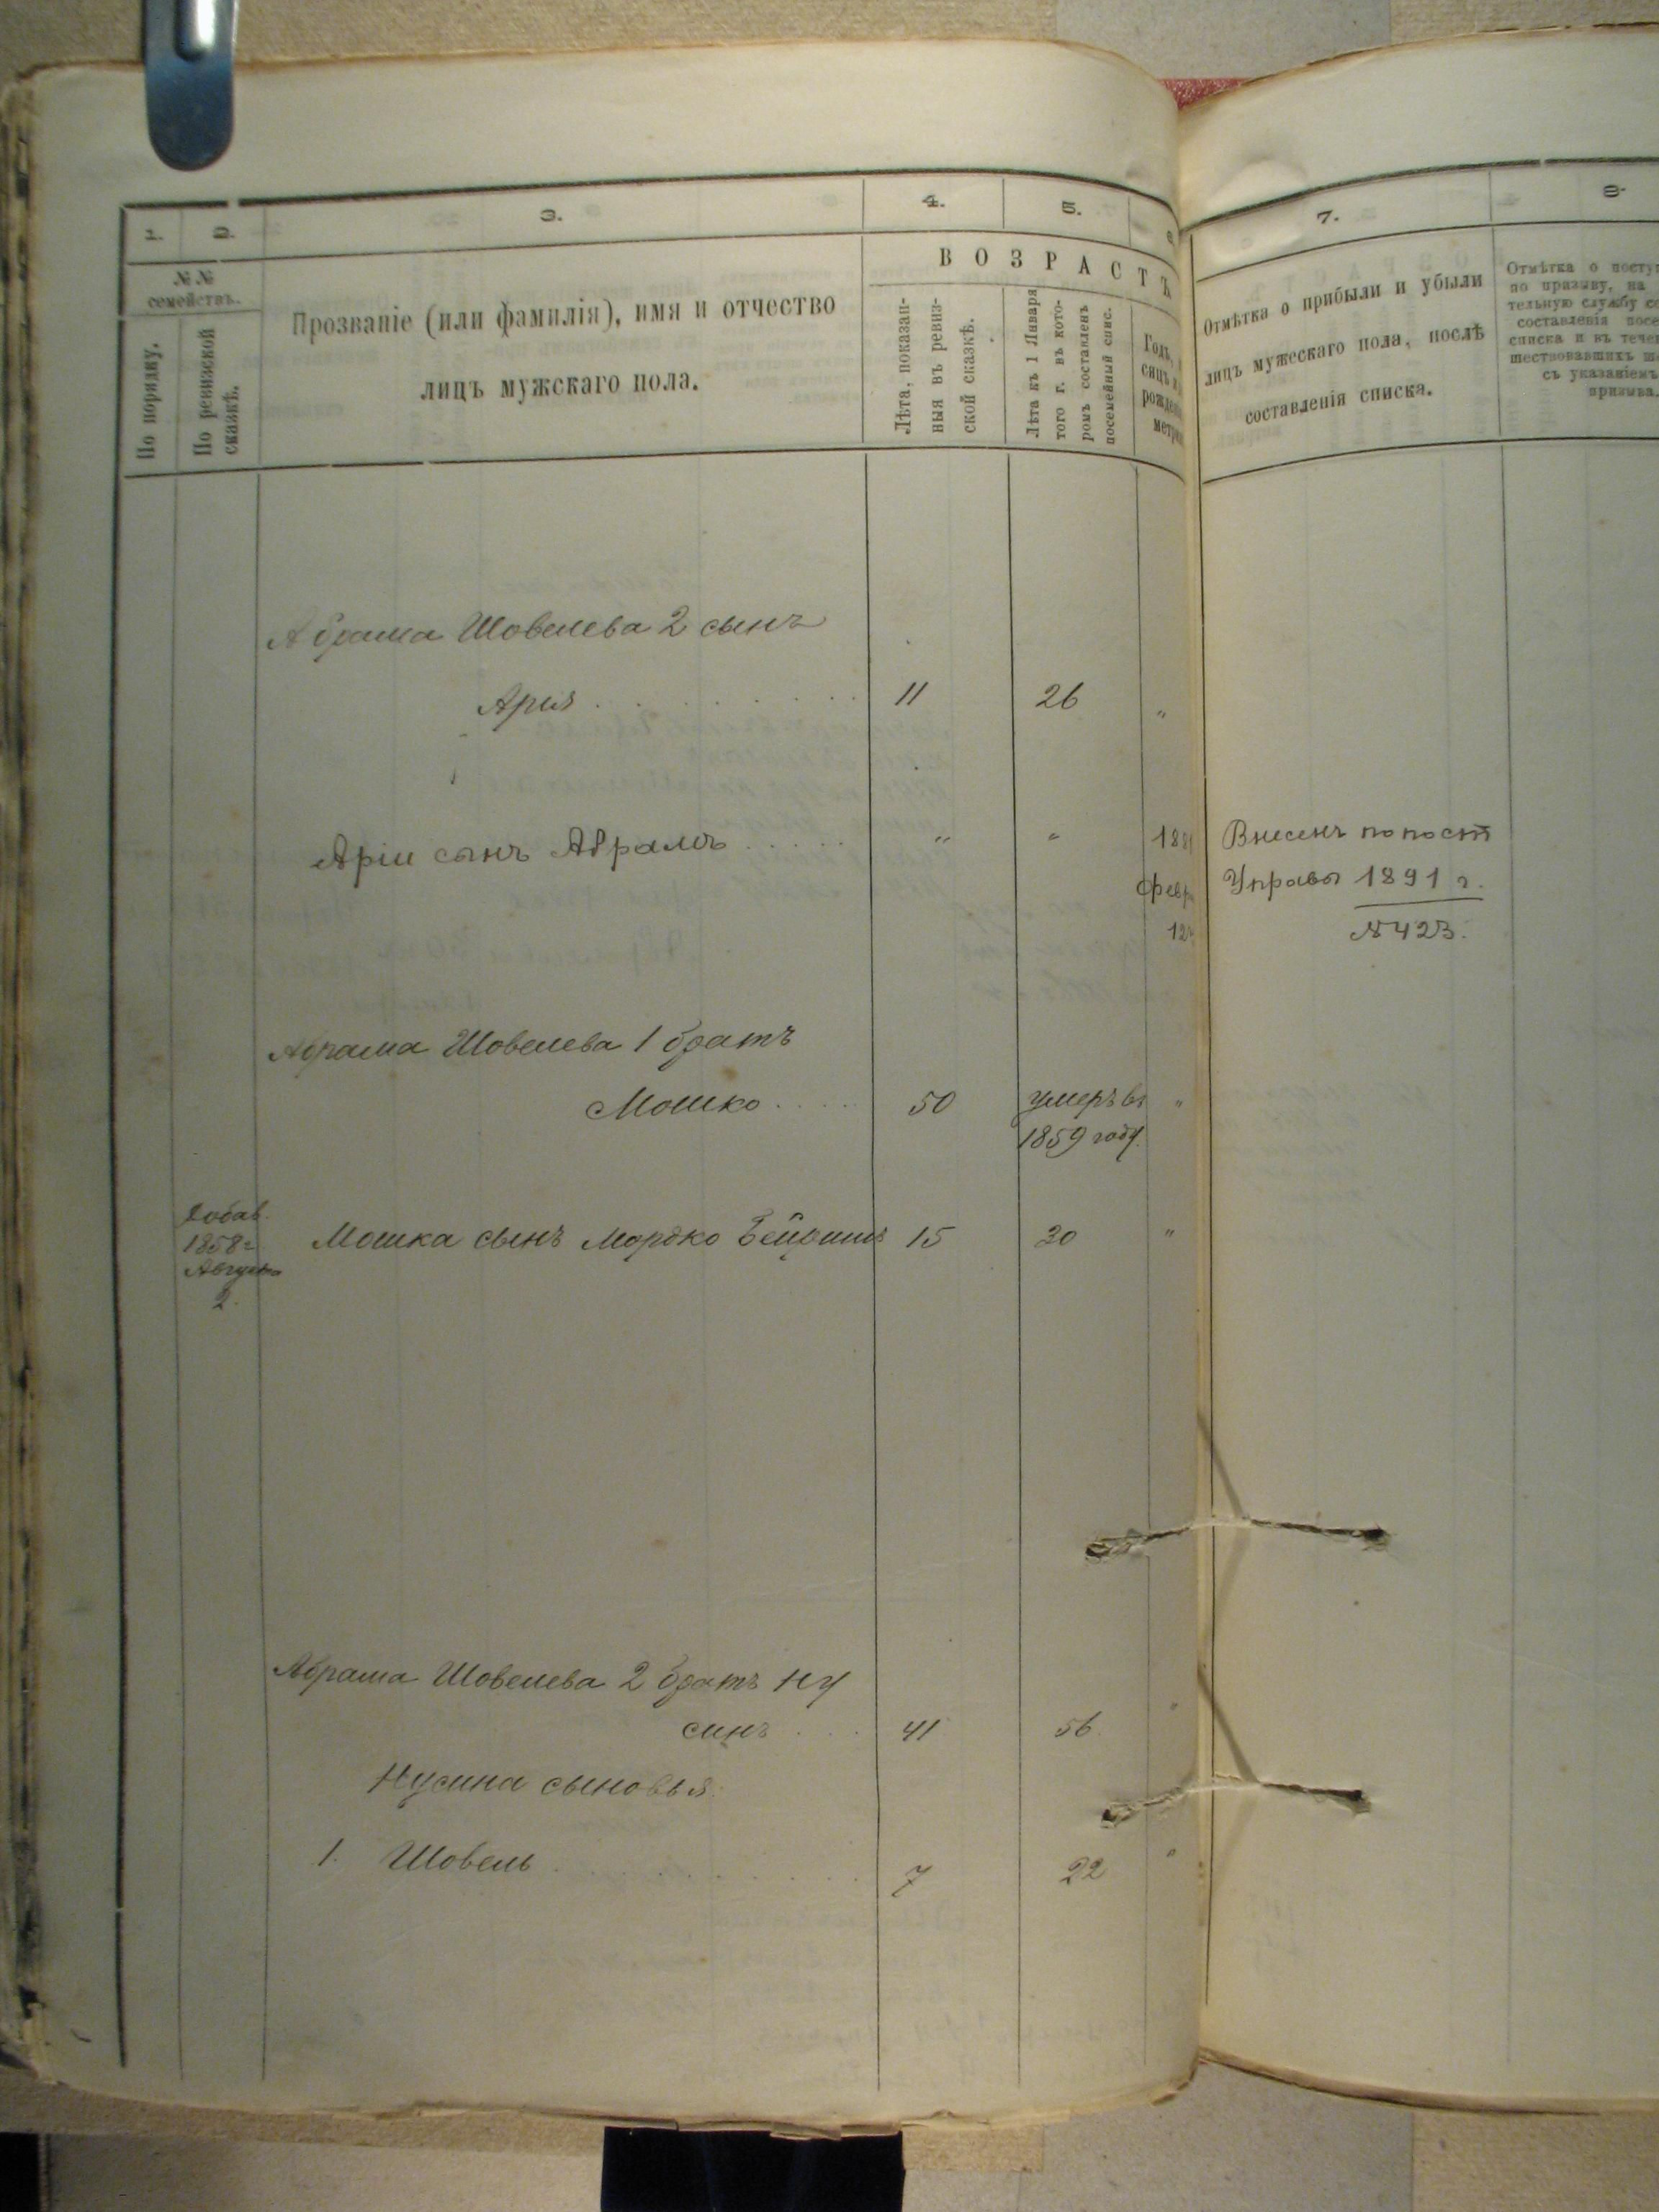 1.
2.
3.
4.
5.
6.
7.
8.
№№
семействъ.
По порядку.
По ревизской
сказкѣ.
Прозваніе (или фамилія), имя и отчество
лицъ мужскаго пола.
ВОЗРАСТЪ
Лѣта, показан-
ныя въ ревиз-
ской сказкѣ.
Лѣта къ 1 Января
того г. въ кото-
ромъ составленъ
посемейный спис.
Годъ,
сяцъ и
рожден
метри
Отмѣтка о прибыли и убыли
лицъ мужескаго пола, послѣ
составленія списка.
Отмѣтка о посту
по призыву, на
тельную службу со
составленія посе
списка и въ тече
шествовавшихъ
съ указаніемъ
призыва.
Абрама Шовелева 2 сынъ
Арія . . . . . . . . 11 26 "
Аріи сынъ Абрамъ . . . . . " " 188
Февр
12
Внесенъ по пост
Управы 1891 г.
№ 423.
Абрама Шовелева 1 братъ
Мошко . . . . 50 умеръ въ "
1859 году.
Добав.
1858 г
Августа
2.
Мошка сынъ Мордко 15 30 "
Абрама Шовелева 2 братъ Ну
синъ . . . 41 56 "
Нусина сыновья:
1. Шовель . . . . . . . . 7 22 "